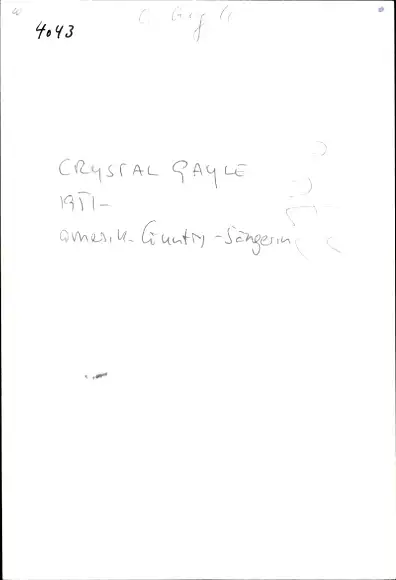 4043
CRYSTAL GAYLE
1951-
amerik. Country-Sängerin